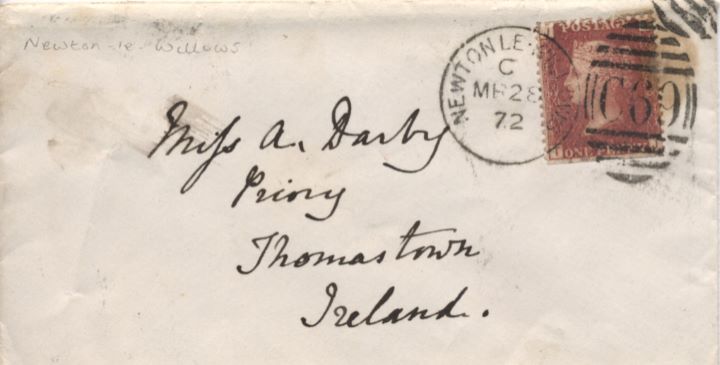 Newton-le-Willows
NEWTON LE
C
MR 28
72
POSTAGE
C69
ONE
Miss A. Darby
Priory
Thomastown
Ireland.